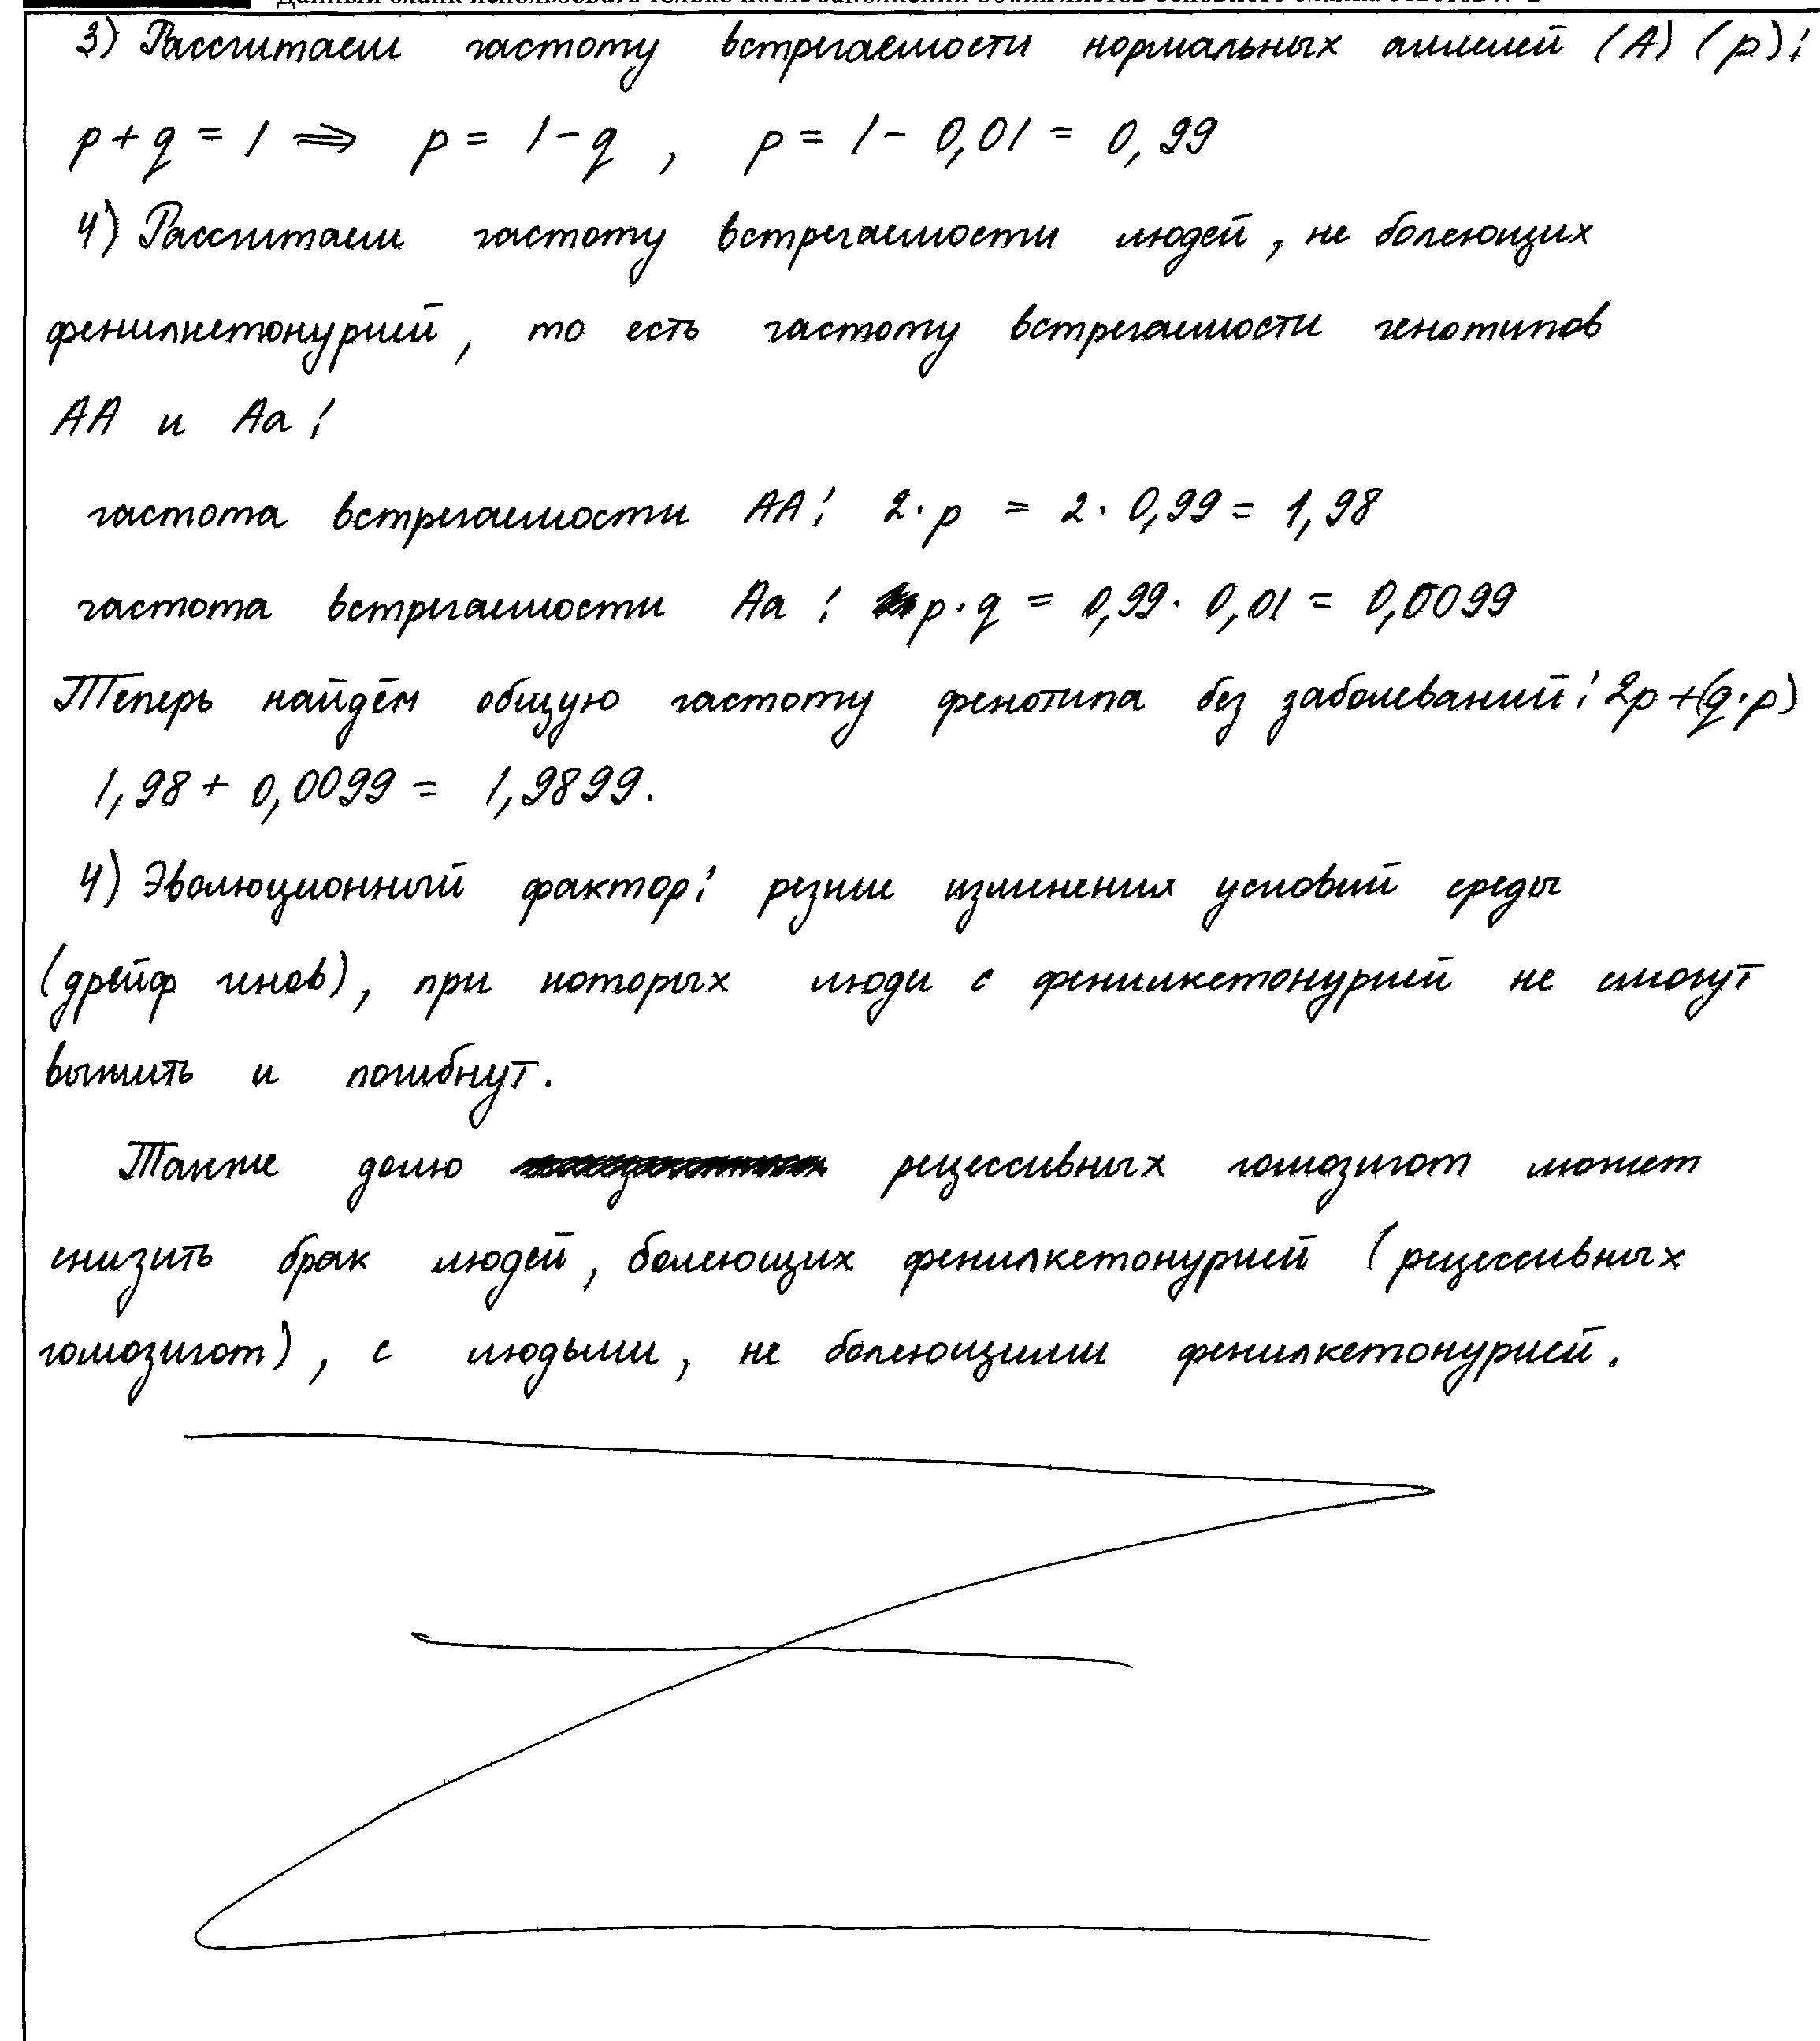 3) Рассчитаем частоту встречаемости нормальных аллелей (А) (p):
p + q = 1 ⇒ p = 1 - q , p = 1 - 0,01 = 0,99
4) Рассчитаем частоту встречаемости людей, не болеющих
фенилкетонурией, то есть частоту встречаемости генотипов
АА и Аа:
частота встречаемости АА: 2·p = 2·0,99 = 1,98
частота встречаемости Аа: p·q = 0,99·0,01 = 0,0099
Теперь найдём общую частоту фенотипа без заболеваний: 2p+(q·p)
1,98 + 0,0099 = 1,9899.
4) Эволюционный фактор: резкие изменения условий среды
(дрейф генов), при которых люди с фенилкетонурией не смогут
выжить и погибнут.
Также долю рецессивных гомозигот может
снизить брак людей, болеющих фенилкетонурией (рецессивных
гомозигот), с людьми, не болеющими фенилкетонурией.